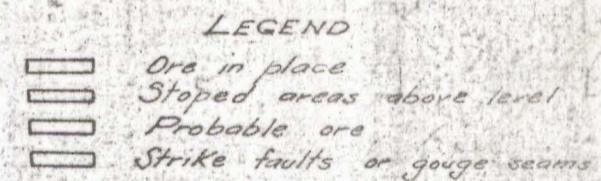 LEGEND
Ore in place
Stoped areas above level
Probable ore
Strike faults or gouge seams